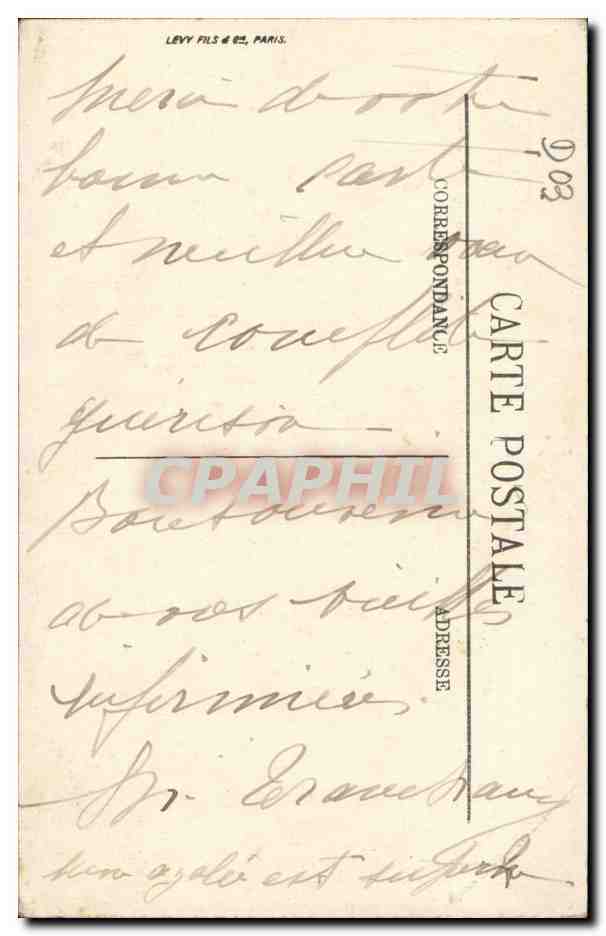 LEVY FILS & Cie, PARIS.
Merci de votre
bonne carte
et meilleurs vœux
de complète
guérison
Bon souvenir
de vos vieilles
infirmières.
mon azalée est superbe
CARTE POSTALE
CORRESPONDANCE
ADRESSE
D 03
CPAPHIL